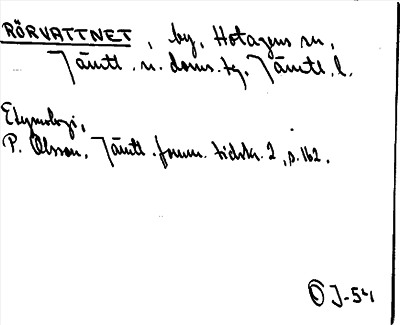 RÖRVATTNET, by, Hotagens sn,
Jämtl. n. doms. tg, Jämtl. l.
Etymologi,
P. Olsson, Jämtl. fornm. tidskr. 2, s. 162.
J-54